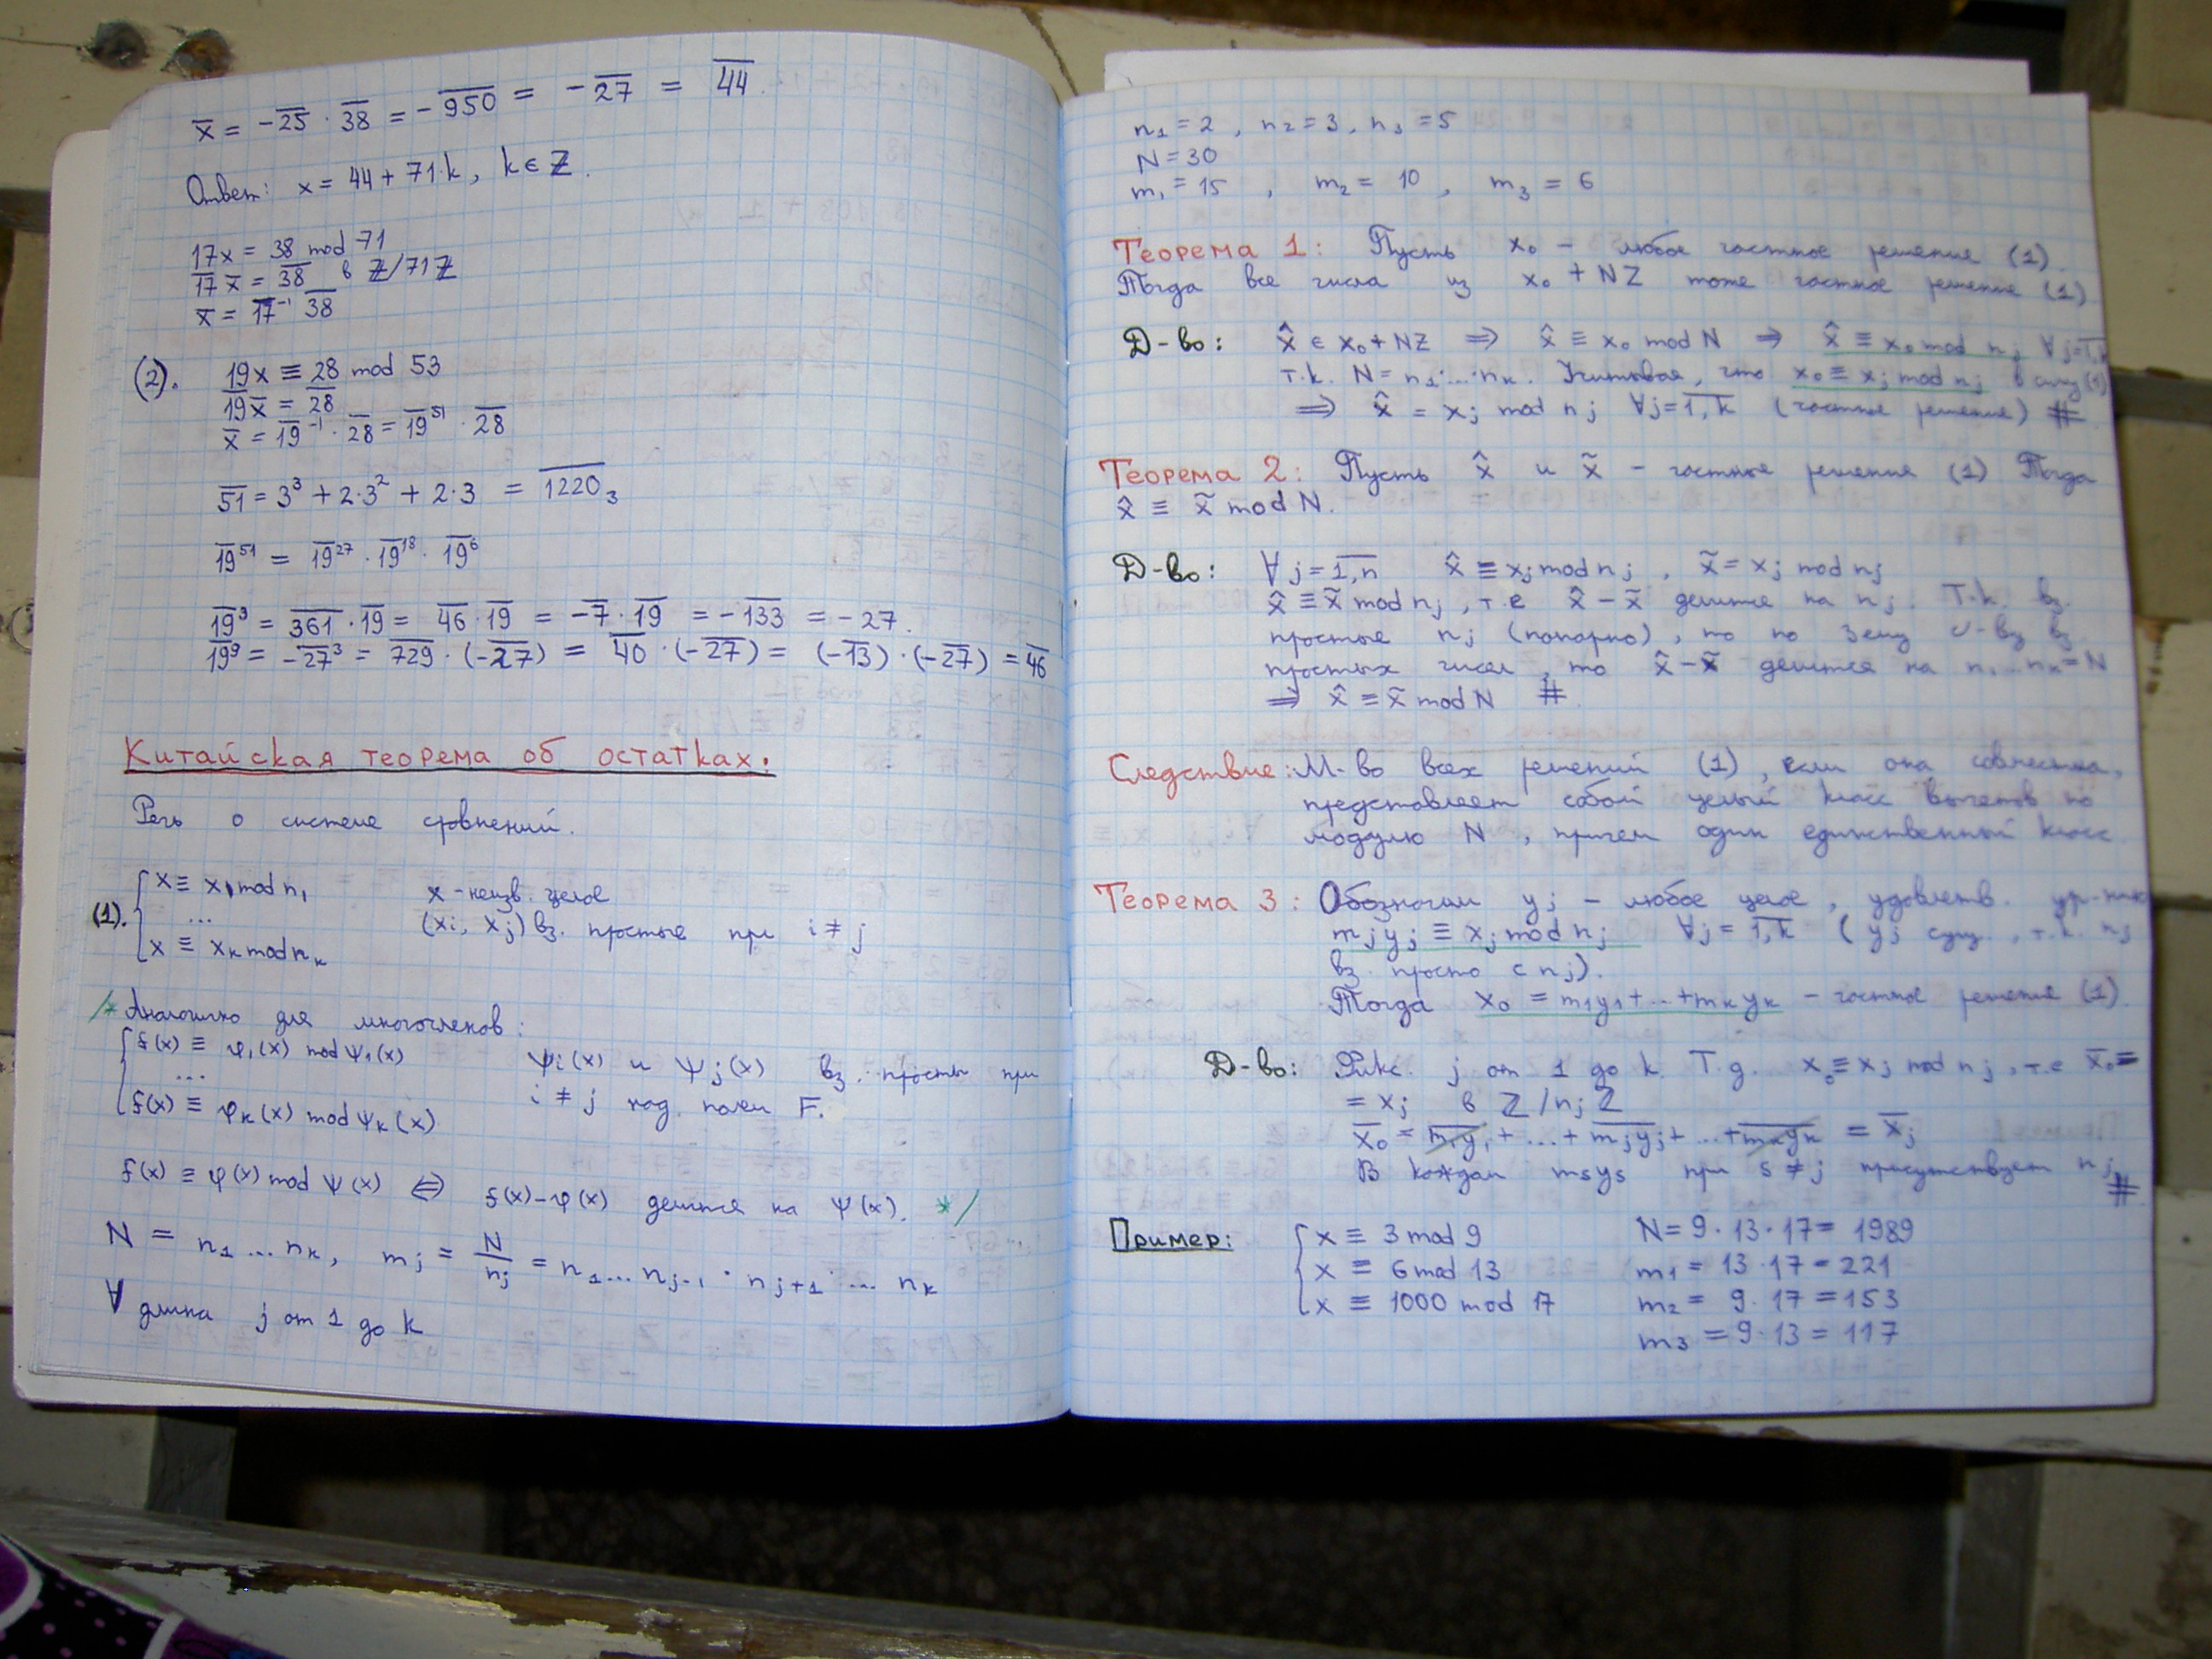 x̄ = -2̅5̅ · 3̅8̅ = -9̅5̅0̅ = -2̅7̅ = 4̅4̅.
Ответ: x = 44 + 71·k, k ∈ Z.
17x = 38 mod 71
1̅7̅ x̄ = 3̅8̅ в Z/71Z
x̄ = 1̅7̅⁻¹ 3̅8̅
(2). 19x ≡ 28 mod 53
1̅9̅x̄ = 2̅8̅
x̄ = 1̅9̅⁻¹ · 2̅8̅ = 1̅9̅⁵¹ · 2̅8̅
5̅1̅ = 3³ + 2·3² + 2·3 = 1̅2̅2̅0̅₃
1̅9̅⁵¹ = 1̅9̅²⁷ · 1̅9̅¹⁸ · 1̅9̅⁶
1̅9̅³ = 3̅6̅1̅ · 1̅9̅ = 4̅6̅ · 1̅9̅ = -7̅ · 1̅9̅ = -1̅3̅3̅ = -27.
1̅9̅⁹ = -2̅7̅³ = 7̅2̅9̅ · (-2̅7̅) = 4̅0̅ · (-2̅7̅) = (-1̅3̅) · (-2̅7̅) = 4̅6̅
Китайская теорема об остатках:
Речь о системе сравнений.
(1). { x ≡ x₁ mod n₁ x - неизв. целое
... (xi, xj) вз. простые при i ≠ j
x ≡ xₖ mod nₖ
/* Аналогично для многочленов:
{ f(x) ≡ φ₁(x) mod ψ₁(x) ψi(x) и ψj(x) вз. просты при
... i ≠ j над полем F.
f(x) ≡ φₖ(x) mod ψₖ(x)
f(x) ≡ φ(x) mod ψ(x) ⇔ f(x)-φ(x) делится на ψ(x). */
N = n₁ ... nₖ, mj = N/nj = n₁ ... nj-1 · nj+1 · ... nₖ
∀ длина j от 1 до k
n₁ = 2, n₂ = 3, n₃ = 5
N = 30
m₁ = 15, m₂ = 10, m₃ = 6
Теорема 1: Пусть x₀ - любое частное решение (1).
Тогда все числа из x₀ + NZ тоже частное решение (1)
Д-во: x̂ ∈ x₀ + NZ ⇒ x̂ ≡ x₀ mod N ⇒ x̂ ≡ x₀ mod nj ∀j=1,k
т.к. N = n₁·...·nₖ. Учитывая, что x₀ ≡ xj mod nj в силу (1)
⇒ x̂ = xj mod nj ∀j=1,k (частное решение) #
Теорема 2: Пусть x̂ и x̃ - частное решения (1) Тогда
x̂ ≡ x̃ mod N.
Д-во: ∀ j = 1,n x̂ ≡ xj mod nj, x̃ = xj mod nj
x̂ ≡ x̃ mod nj, т.е x̂ - x̃ делится на nj. Т.к. вз.
простые nj (попарно), то по 3ему св-ву вз.
простых чисел, то x̂ - x̃ делится на n₁...nₖ = N
⇒ x̂ ≡ x̃ mod N #.
Следствие: М-во всех решений (1), если она совместна,
представляет собой целый класс вычетов по
модулю N, причем один единственный класс
Теорема 3: Обозначим yj - любое целое, удовлетв. ур-нию
mjyj ≡ xj mod nj ∀j = 1,k (yj сущ., т.к. nj
вз. просто с nj).
Тогда x₀ = m₁y₁ + ... + mₖyₖ - частное решение (1).
Д-во: Фикс. j от 1 до k. Т.д. x₀ ≡ xj mod nj, т.е x̄₀ =
= xj в Z/njZ
x̄₀ = m₁y₁ + ... + mjyj + ... + mₖyₖ = x̄j
В каждом msys при s ≠ j присутствует nj #
Пример: { x ≡ 3 mod 9 N = 9·13·17 = 1989
x ≡ 6 mod 13 m₁ = 13·17 = 221
x ≡ 1000 mod 17 m₂ = 9·17 = 153
m₃ = 9·13 = 117